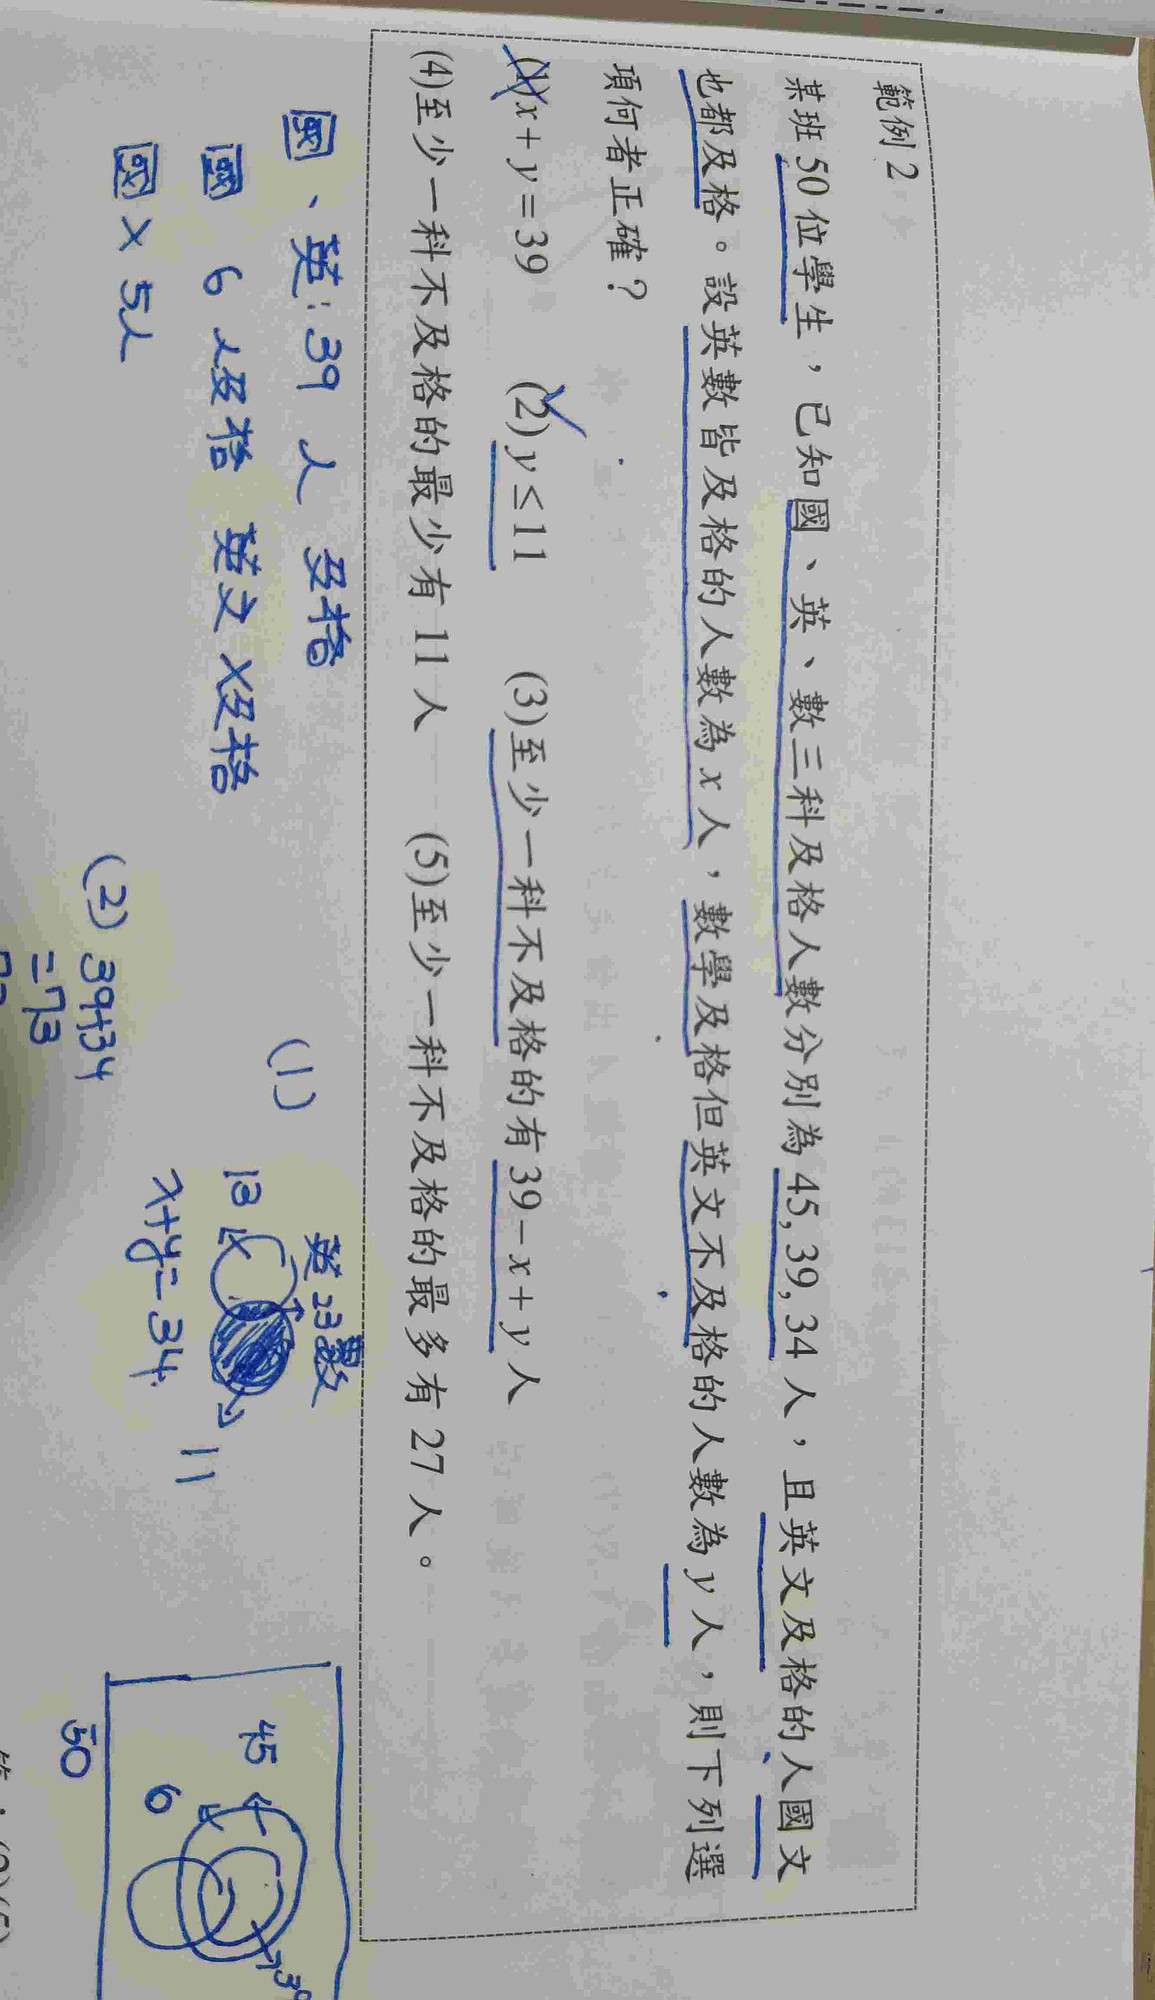 範例 2
某班 50 位學生，已知國、英、數三科及格人數分別為 45, 39, 34 人，且英文及格的人國文
也都及格。設英數皆及格的人數為 x 人，數學及格但英文不及格的人數為 y 人，則下列選
項何者正確？
(1) x + y = 39 (2) y ≤ 11 (3)至少一科不及格的有 39 − x + y 人
(4)至少一科不及格的最少有 11 人 (5)至少一科不及格的最多有 27 人。
國、英：39 人 及格
國 6 人及格 英文 X及格
國 X 5人
(1)
英 23 數
13
11
x+y=34.
(2) 39+34
=73
45
6
39
50